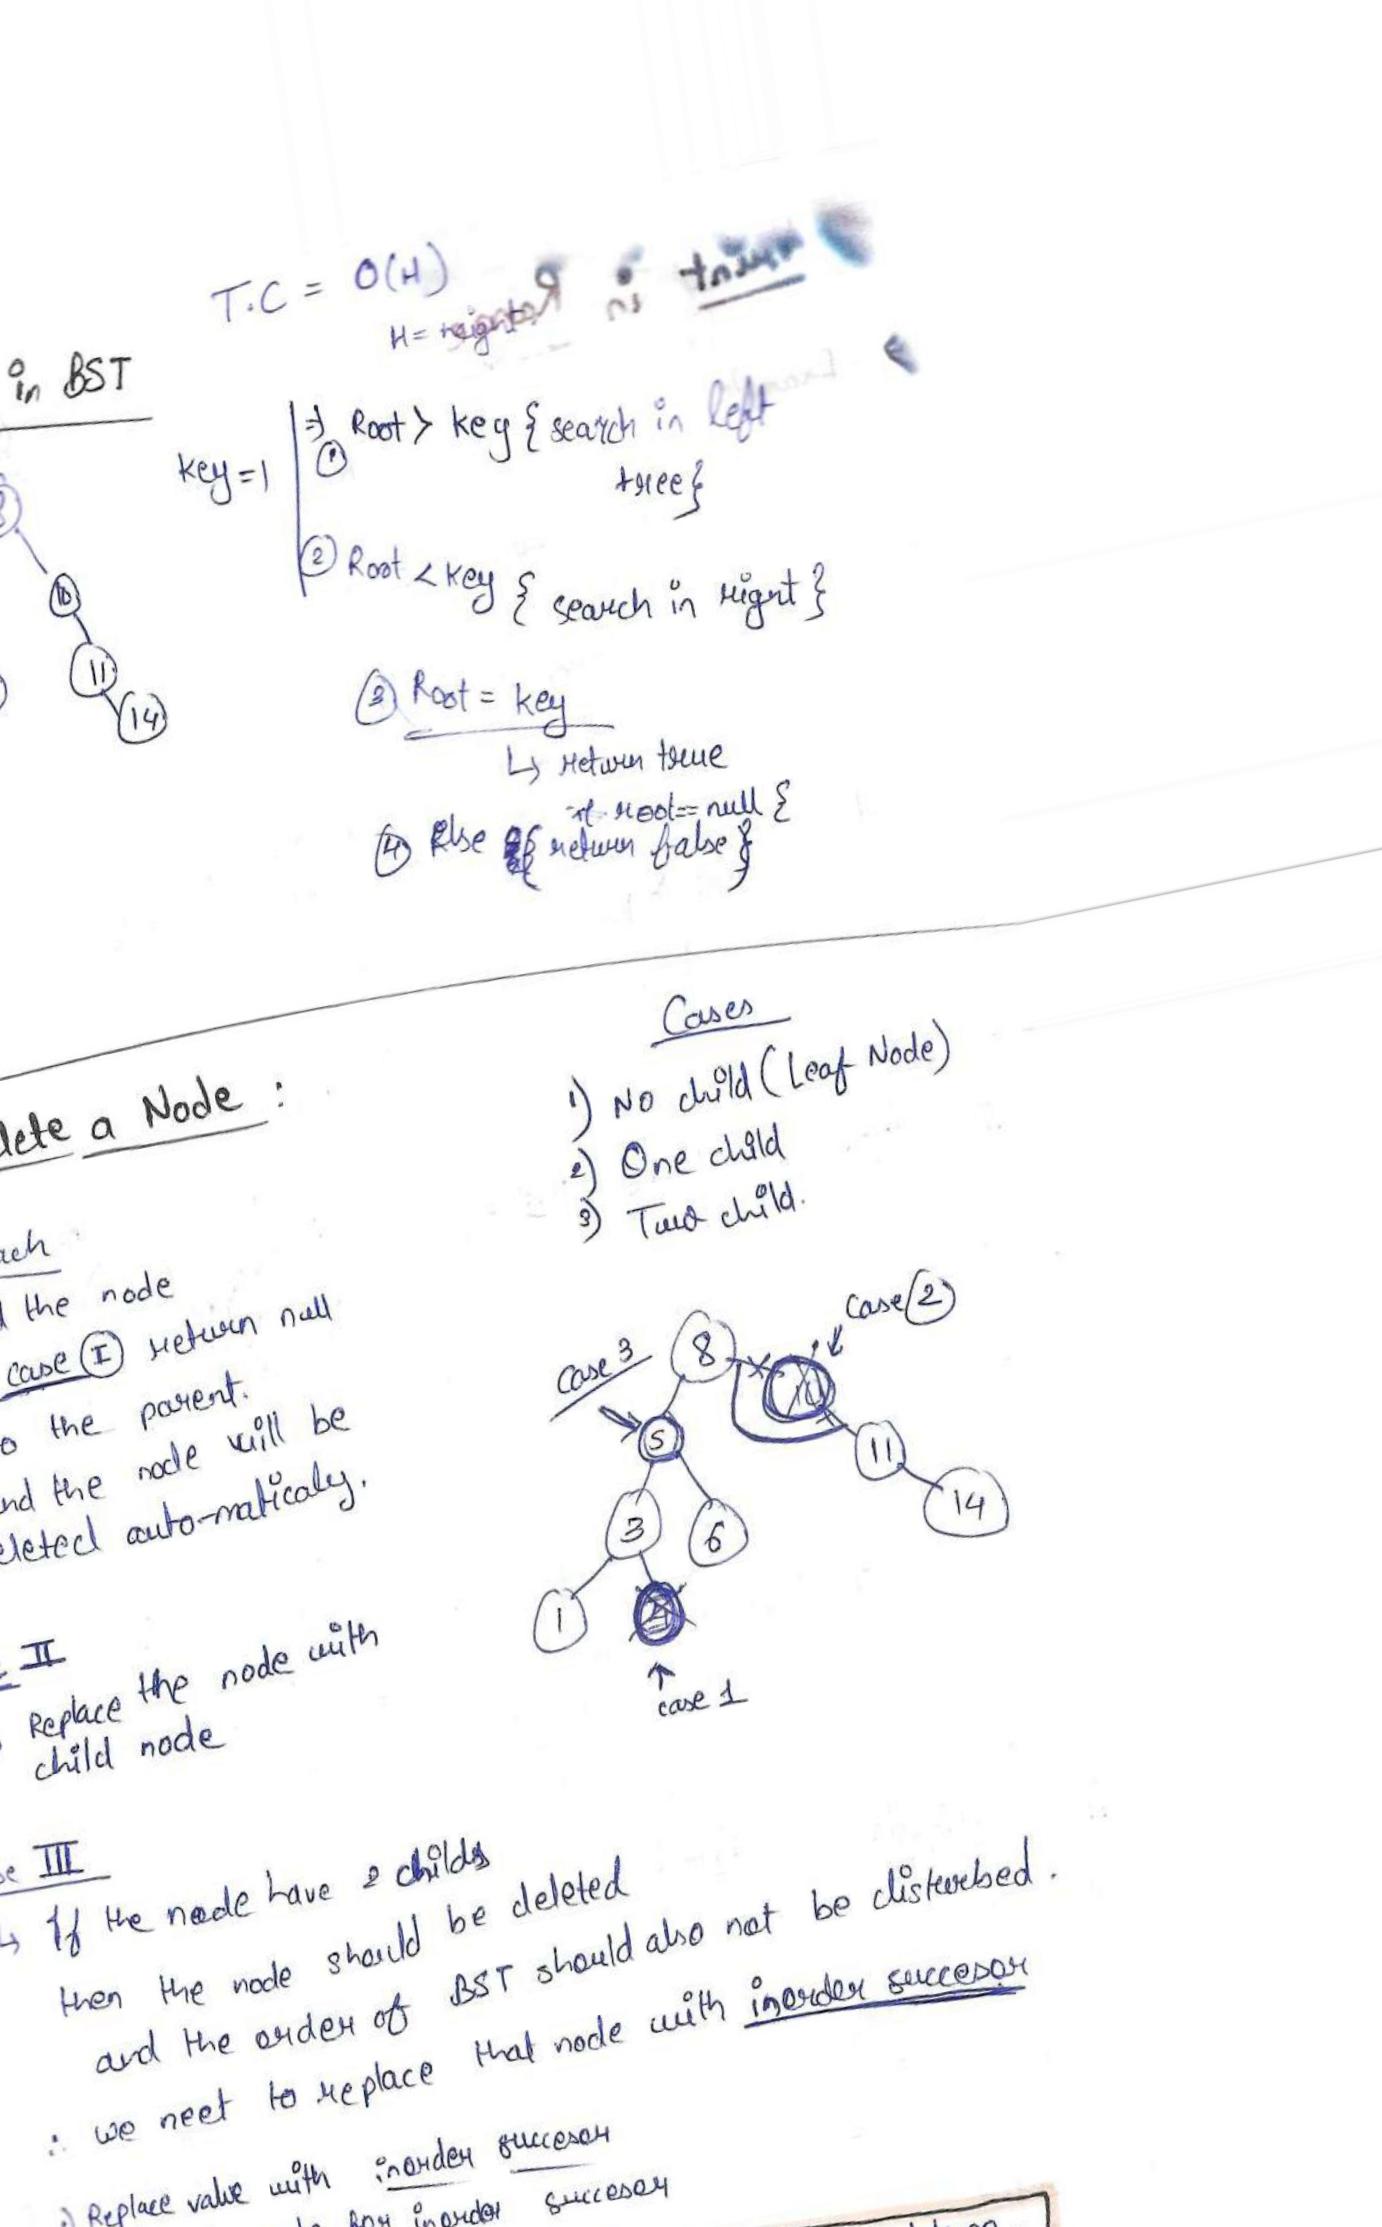 T.C = O(H)
H = height
in BST
key=1
=> ① Root > key { search in left
tree }
② Root < key { search in right }
10
11
14
③ Root = key
↳ return true
if root == null {
④ Else { return false }
Cases
lete a Node :
1) No child (Leaf Node)
2) One child
3) Two child.
ach
the node
case Ⅰ return null
o the parent.
nd the node will be
eleted auto-maticaly.
case ②
case 3
8
10
5
11
14
3
6
1
4
case 1
II
Replace the node with
child node
se III
↳ If the node have 2 childs
then the node should be deleted
and the order of BST should also not be disturbed.
∴ we neet to replace that node with inorder succesor
Replace value with inorder succesor
for inorder succesor